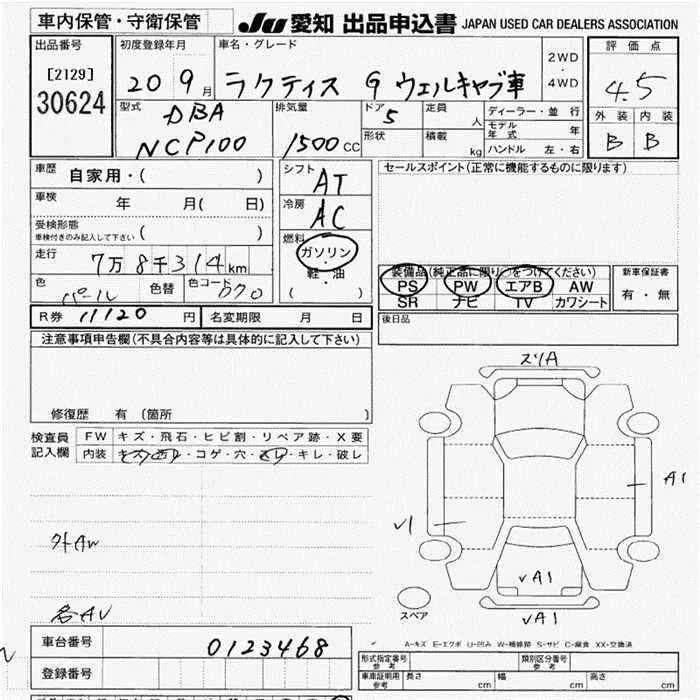 車内保管・守衛保管
JU 愛知 出品申込書 JAPAN USED CAR DEALERS ASSOCIATION
出品番号
[2129]
30624
初度登録年月
20 9月
車名・グレード
ラクティス G ウェルキャブ車
2WD
・
4WD
評価点
4.5
外装 内装
B B
型式
DBA
NCP100
排気量
1500 CC
ドア
5
定員
人
形状
積載
kg
ディーラー・並行
モデル年式 年
ハンドル 左・右
車歴
自家用・( )
車検
年 月( 日)
受検形態
車検付きのみ記入して下さい ( )
走行
7万8千314km
色
パール
色替
色コード
070
シフト
AT
冷房
AC
燃料
ガソリン
・
軽・油
( )
セールスポイント(正常に機能するものに限ります)
装備品(純正品に限り○をつけてください)
PS PW エアB AW
SR ナビ TV カワシート
新車保証書
有・無
R券 11120 円
名変期限 月 日
後日品
注意事項申告欄(不具合内容等は具体的に記入して下さい)
修復歴 有(箇所 )
検査員
記入欄
FW キズ・飛石・ヒビ割・リペア跡・X要
内装 キズ・汚レ・コゲ・穴・スレ・キレ・破レ
スリA
A1
√1
√A1
√A1
スペア
外AW
各AU
車台番号
0123468
登録番号
A-キズ E-エクボ U-凹み W-補修跡 S-サビ C-腐食 XX-交換済
形式指定番号
参考
類別区分番号
参考
車庫証明用
参考
長さ cm
幅 cm
高さ cm